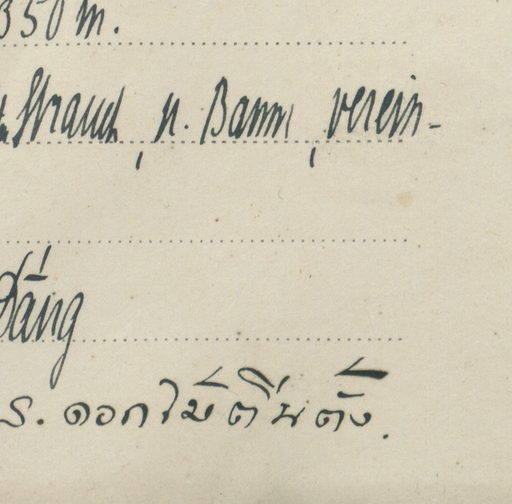 350 m.
Strauch, u. Baum, verein-
Dáng
S. ดอกไม้ตีนตั้ง.